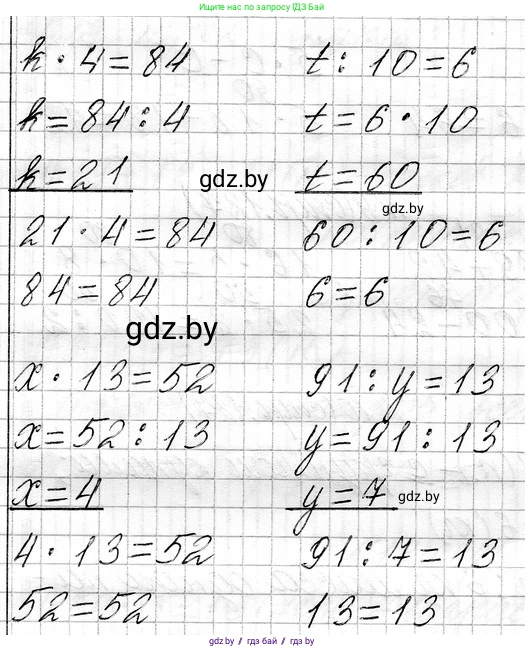 Ищите нас по запросу ГДЗ БАЙ
k · 4 = 84
k = 84 : 4
k = 21
21 · 4 = 84
84 = 84
t : 10 = 6
t = 6 · 10
t = 60
60 : 10 = 6
6 = 6
gdz.by
gdz.by
gdz.by
x · 13 = 52
x = 52 : 13
x = 4
4 · 13 = 52
52 = 52
91 : y = 13
y = 91 : 13
y = 7
gdz.by
91 : 7 = 13
13 = 13
gdz.by // гдз бай // гдз by